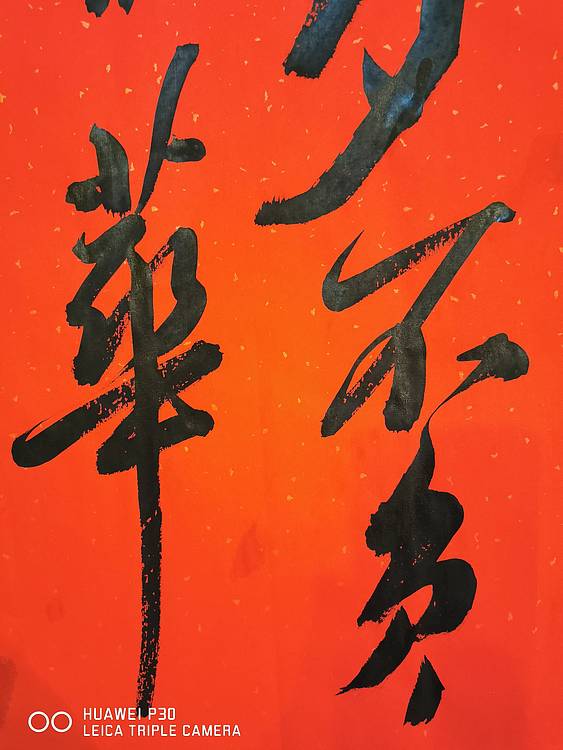 不負
華
HUAWEI P30
LEICA TRIPLE CAMERA